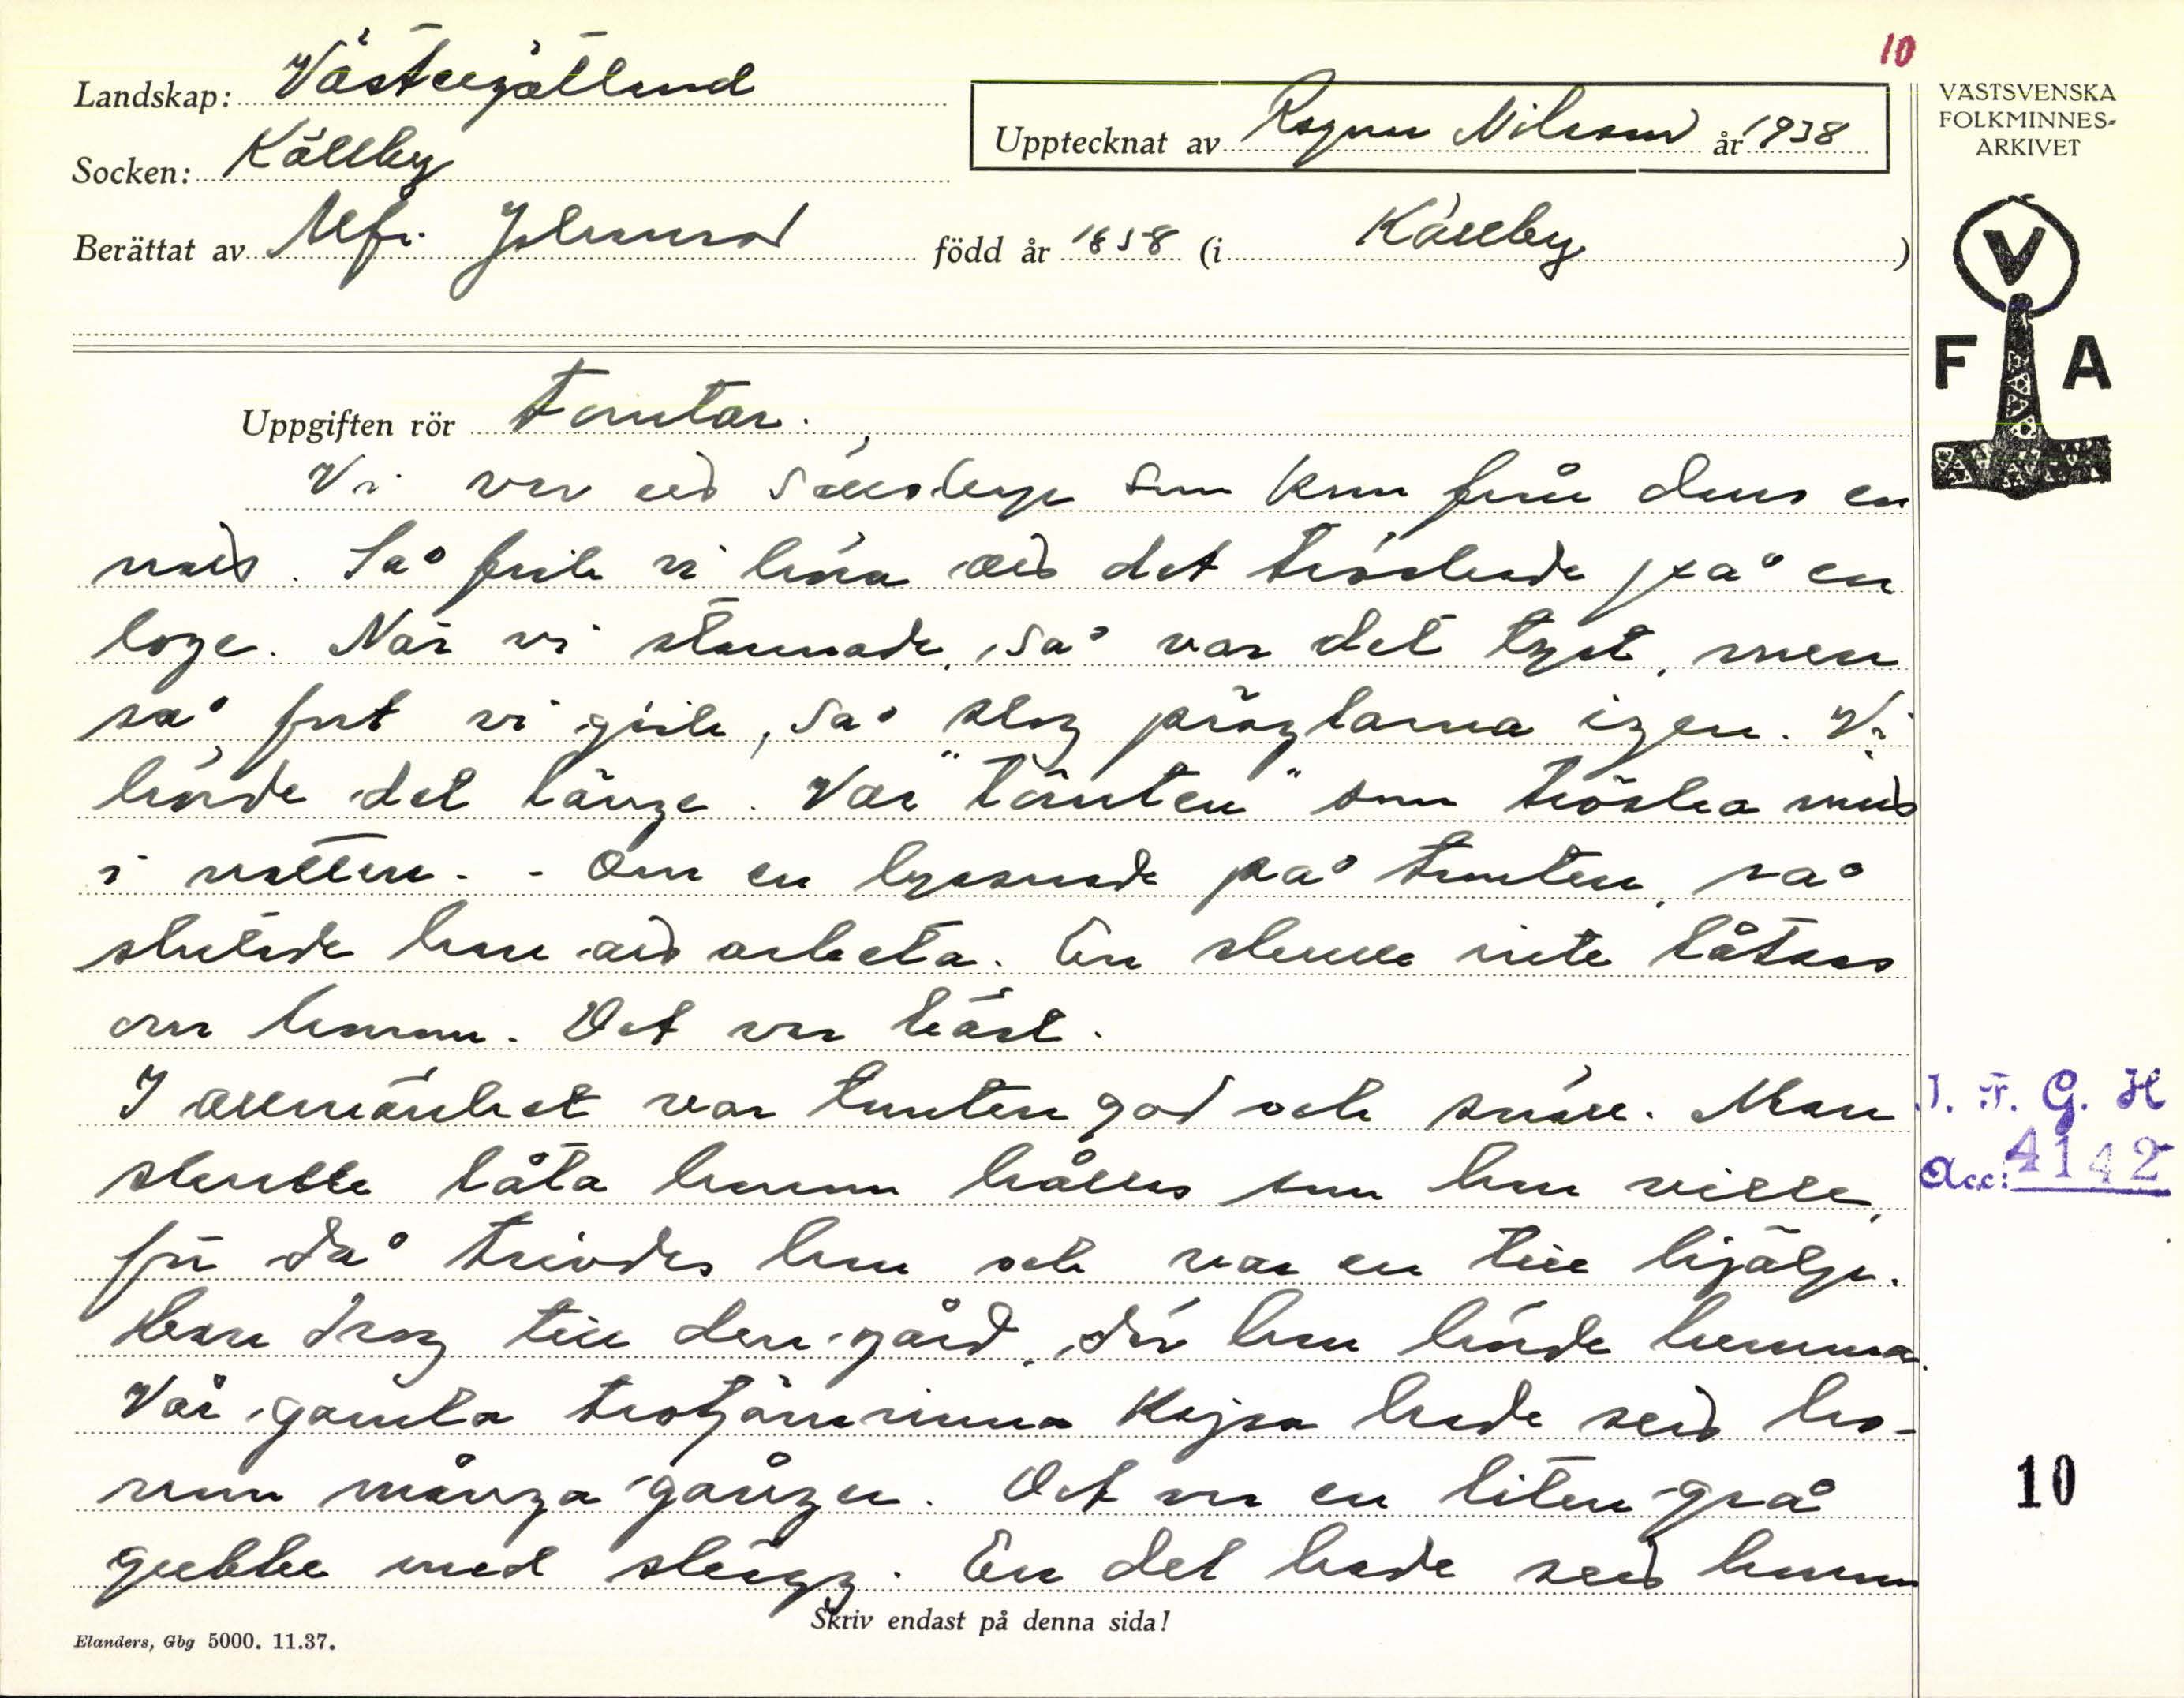 10
Landskap: Västergötland
VÄSTSVENSKA
FOLKMINNES-
ARKIVET
Upptecknat av Ragnar Nilsson år 1938
Socken: Källby
Berättat av Alfr. Johansson född år 1858 (i Källby)
V
F A
Uppgiften rör tomtar.
Vi var ett sällskap som kom från dans en
natt. Så fick vi höra att det tröskade på en
loge. När vi stannade, så var det tyst, men
så fort vi gick, så slog pläglarna igen. Vi
hörde det länge. Var "tomten" som tröska mitt
i natten. - Om en lyssnade på tomten, så
slutade han att arbeta. En skulle inte låtsas
om honom. Det var bäst.
I allmänhet var tomten god och snäll. Man
skulle låta honom hållas som han ville,
för då trivdes han och var en till hjälp.
Han drog till den gård, där han hörde hemma.
Vår gamla trotjänarinna Kajsa hade sett ho-
nom många gånger. Det var en liten grå
gubbe med skägg. En del hade sett honom
I. F. G. H
Acc: 4142
10
Skriv endast på denna sida!
Elanders, Gbg 5000. 11.37.